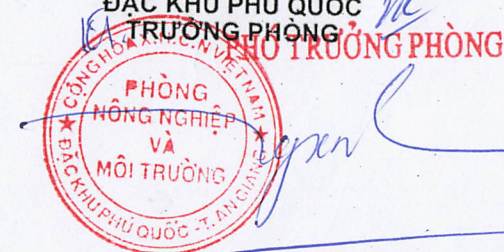 ĐẶC KHU PHÚ QUỐC
TRƯỞNG PHÒNG
PHÓ TRƯỞNG PHÒNG
CỘNG HÒA X.H.C.N VIỆT NAM
PHÒNG
NÔNG NGHIỆP
VÀ
MÔI TRƯỜNG
ĐẶC KHU PHÚ QUỐC - T. AN GIANG